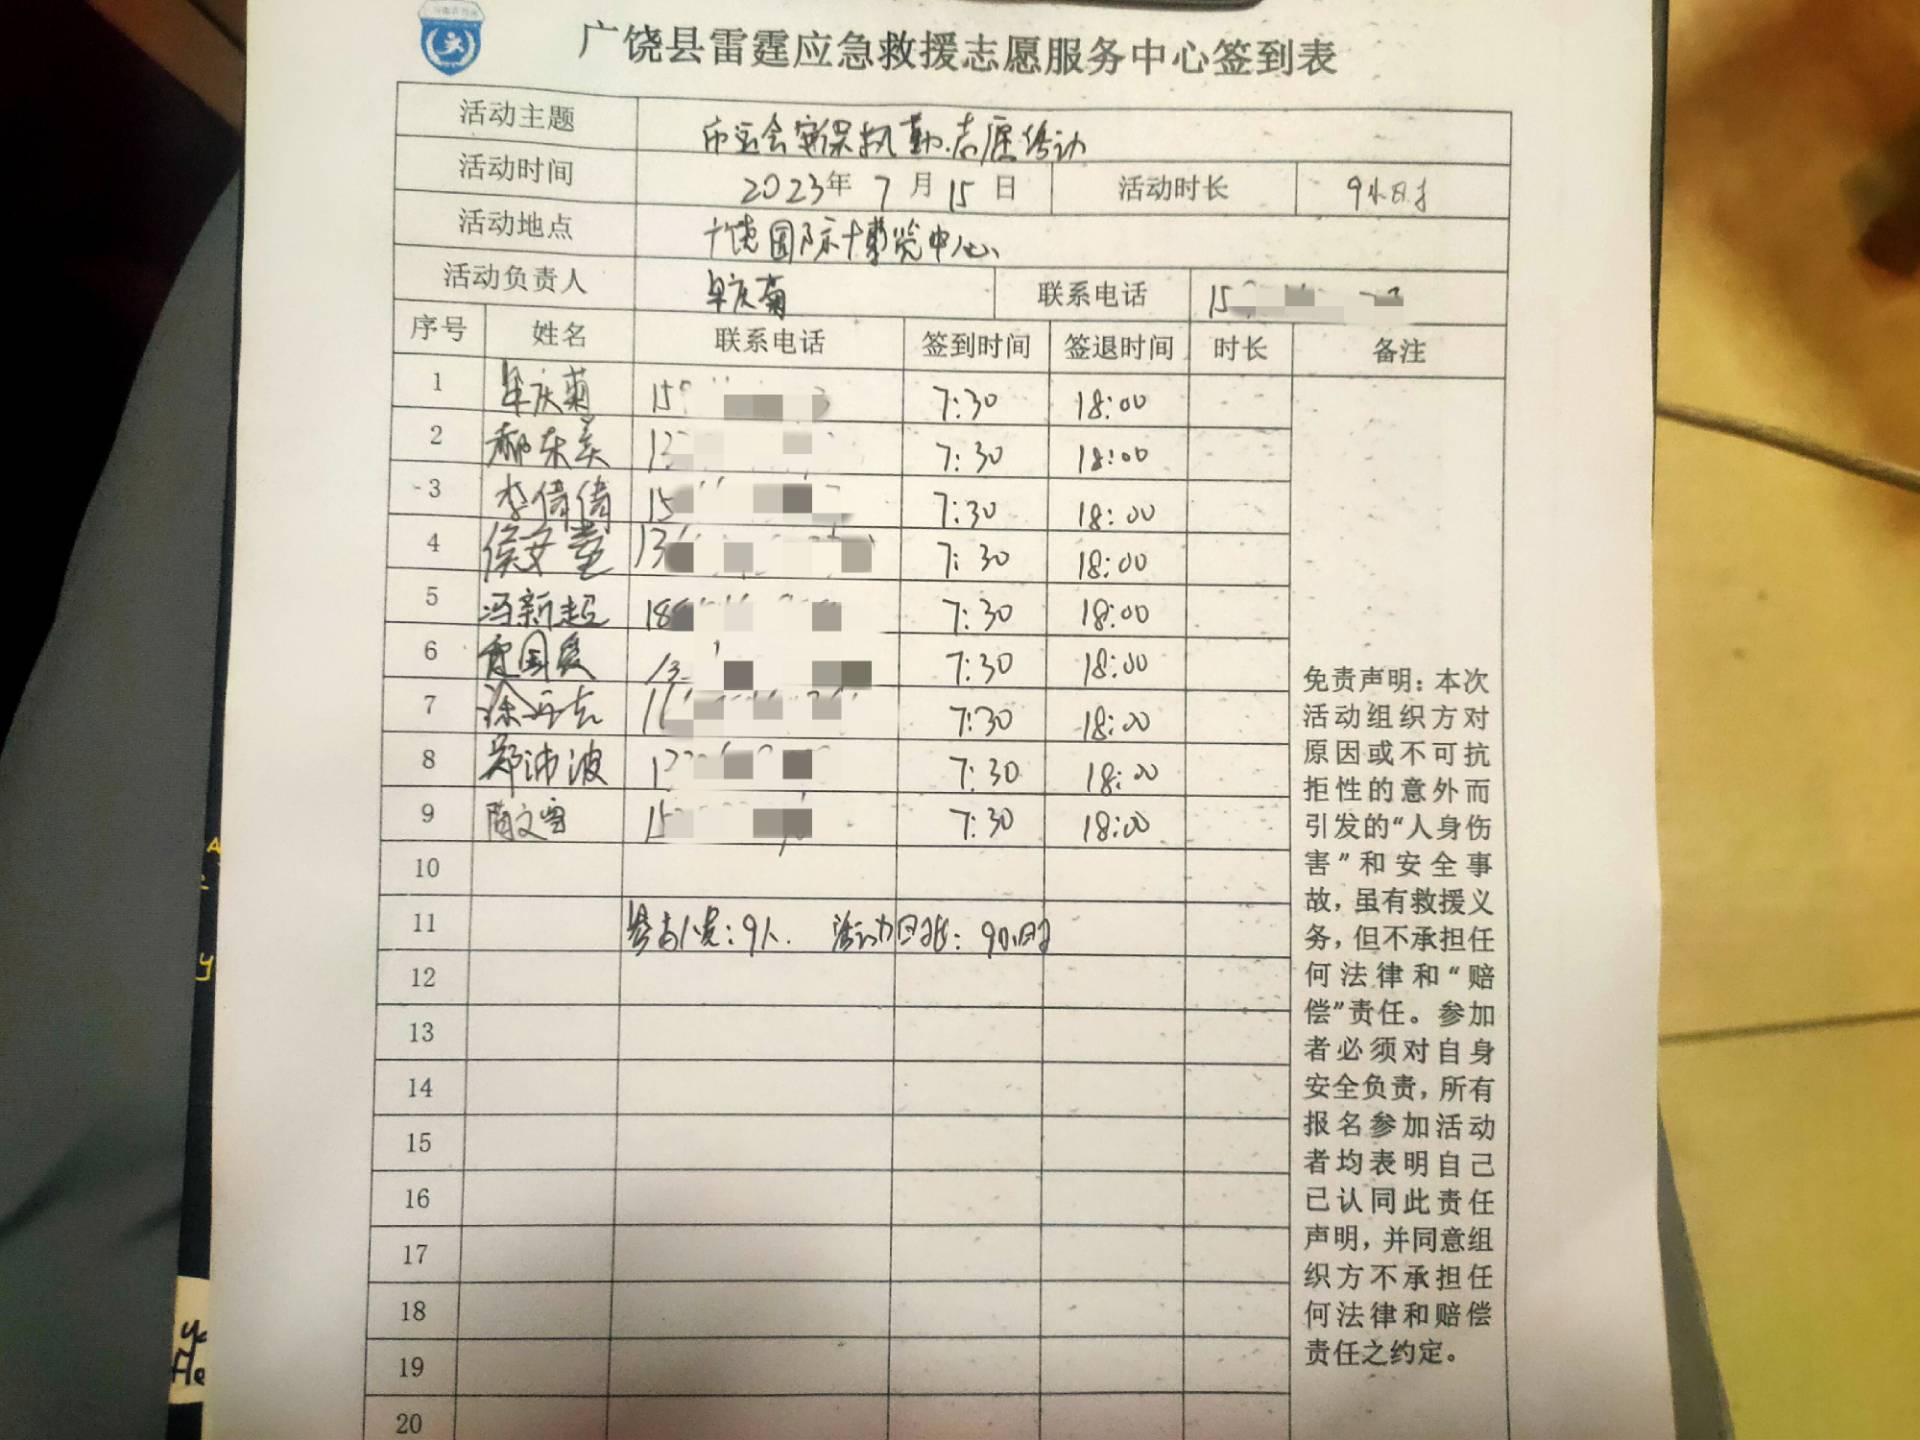 广饶县雷霆应急救援志愿服务中心签到表
活动主题 市运会安保执勤志愿活动
活动时间 2023年 7 月 15 日 活动时长 9小时
活动地点 广饶国际博览中心
活动负责人 牟庆菊 联系电话 15
序号 姓名 联系电话 签到时间 签退时间 时长 备注
1 牟庆菊 15 7:30 18:00
2 郝东美 13 7:30 18:00
3 李倩倩 15 7:30 18:00
4 侯文董 13 7:30 18:00
5 冯新超 18 7:30 18:00
6 国爱 13 7:30 18:00
7 徐 志 7:30 18:00
8 郑沛波 7:30 18:00
9 文雪 15 7:30 18:00
10
11 参与人员:9人. 活动时长:9小时
12
13
14
15
16
17
18
19
20
免责声明:本次
活动组织方对
原因或不可抗
拒性的意外而
引发的“人身伤
害”和安全事
故,虽有救援义
务,但不承担任
何法律和“赔
偿”责任。参加
者必须对自身
安全负责,所有
报名参加活动
者均表明自己
已认同此责任
声明,并同意组
织方不承担任
何法律和赔偿
责任之约定。